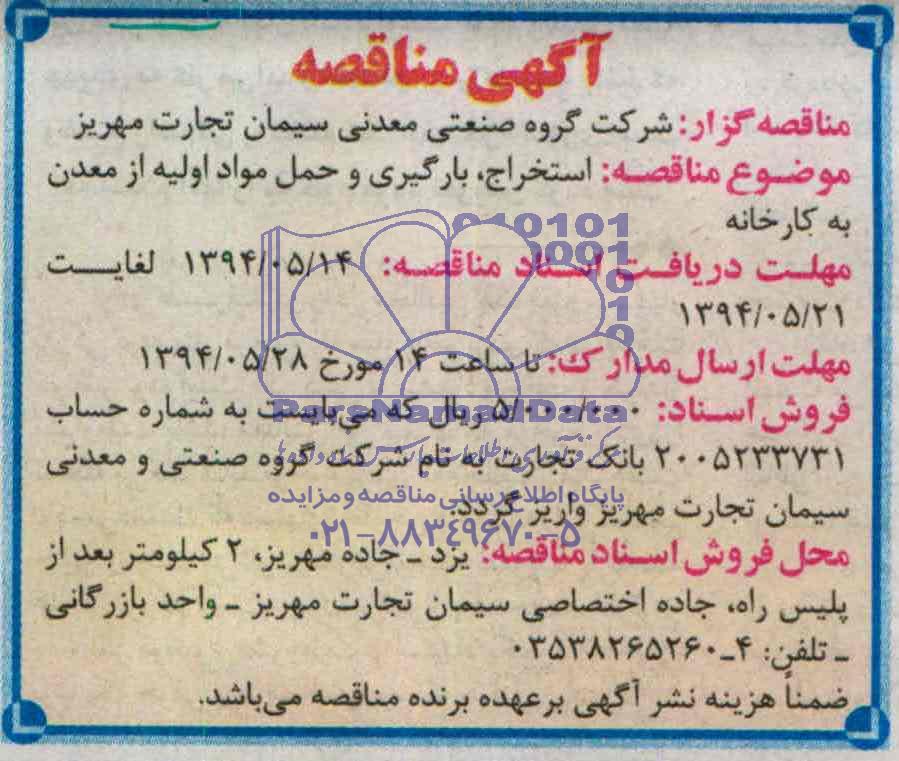 آگهی مناقصه
مناقصه گزار: شرکت گروه صنعتی معدنی سیمان تجارت مهریز
موضوع مناقصه: استخراج، بارگیری و حمل مواد اولیه از معدن
به کارخانه
مهلت دریافت اسناد مناقصه: ۱۳۹۴/۰۵/۱۴ لغایت
۱۳۹۴/۰۵/۲۱
مهلت ارسال مدارک: تا ساعت ۱۴ مورخ ۱۳۹۴/۰۵/۲۸
فروش اسناد: ۵/۰۰۰/۰۰۰ ریال که می‌بایست به شماره حساب
۲۰۰۵۲۳۳۷۳۱ بانک تجارت به نام شرکت گروه صنعتی و معدنی
سیمان تجارت مهریز واریز گردد.
محل فروش اسناد مناقصه: یزد ـ جاده مهریز، ۲ کیلومتر بعد از
پلیس راه، جاده اختصاصی سیمان تجارت مهریز ـ واحد بازرگانی
ـ تلفن: ۴ـ۰۳۵۳۸۲۶۵۲۶۰
ضمناً هزینه نشر آگهی برعهده برنده مناقصه می‌باشد.
ParsNamadData
پایگاه اطلاع رسانی مناقصه و مزایده
۰۲۱-۸۸۳۴۹۶۷۰-۵